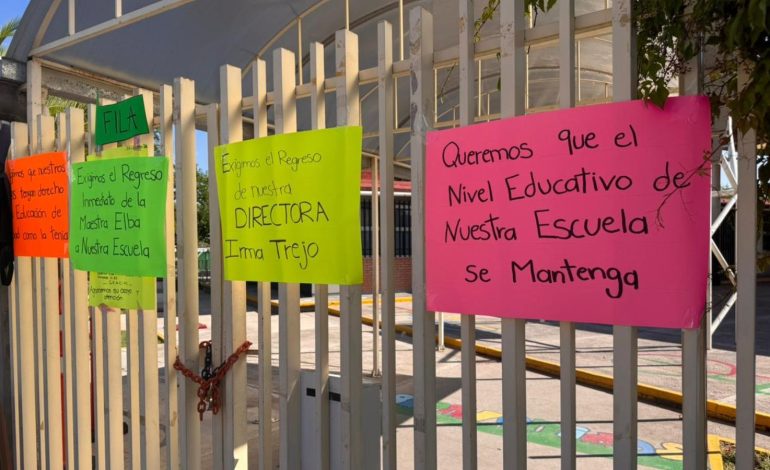 FILA
que nuestros
tengan derecho
Educación de
como la tenia
Exigimos el Regreso
Inmediato de la
Maestra Elba
a Nuestra Escuela
Exigimos el Regreso
de nuestra
DIRECTORA
Irma Trejo
Queremos que el
Nivel Educativo de
Nuestra Escuela
se Mantenga